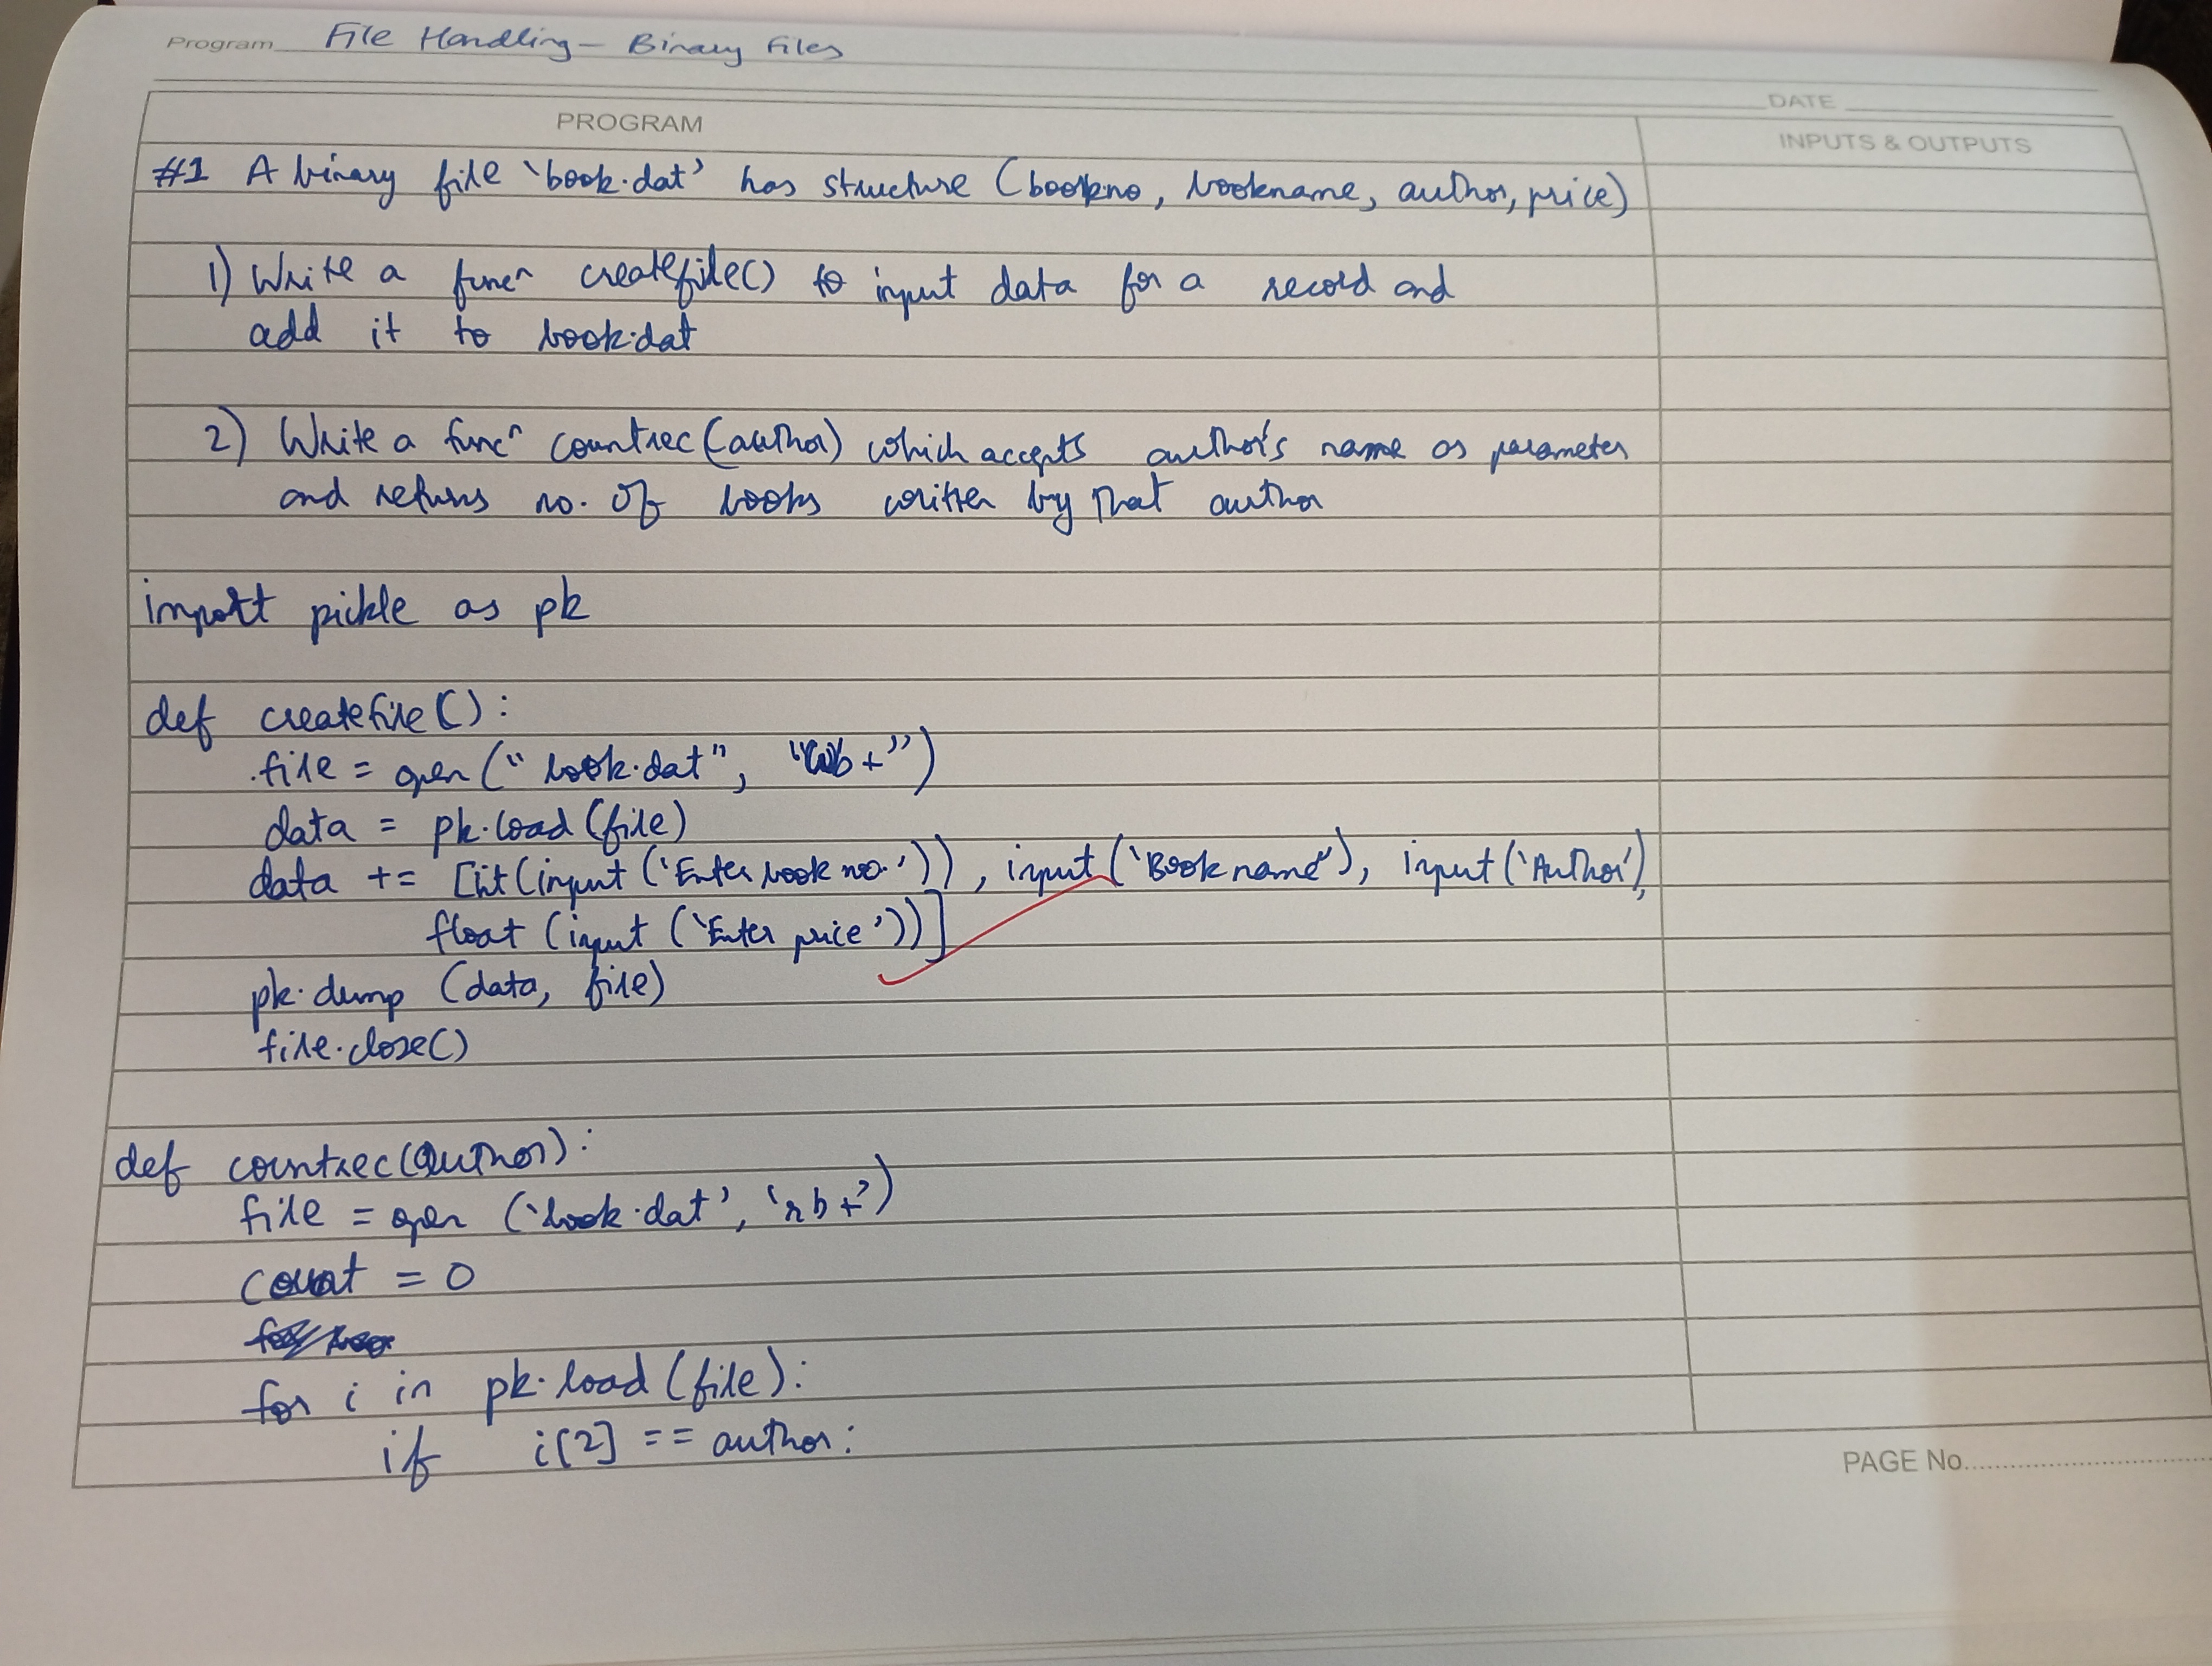 Program File Handling - Binary Files
DATE
PROGRAM
INPUTS & OUTPUTS
#1 A binary file 'book.dat' has structure (bookno, bookname, author, price)
1) Write a funcn createfile() to input data for a record and
add it to book.dat
2) Write a funcn countrec(author) which accepts author's name as parameter
and returns no. of books written by that author
import pickle as pk
def createfile():
file = open("book.dat", "wb+")
data = pk.load(file)
data += [int(input('Enter book no.')), input('Book name'), input('Author'),
float(input('Enter price'))]
pk.dump (data, file)
file.close()
def countrec(author):
file = open ('book.dat', 'rb+')
count = 0
for i in pk.load(file):
if i[2] == author:
PAGE No.